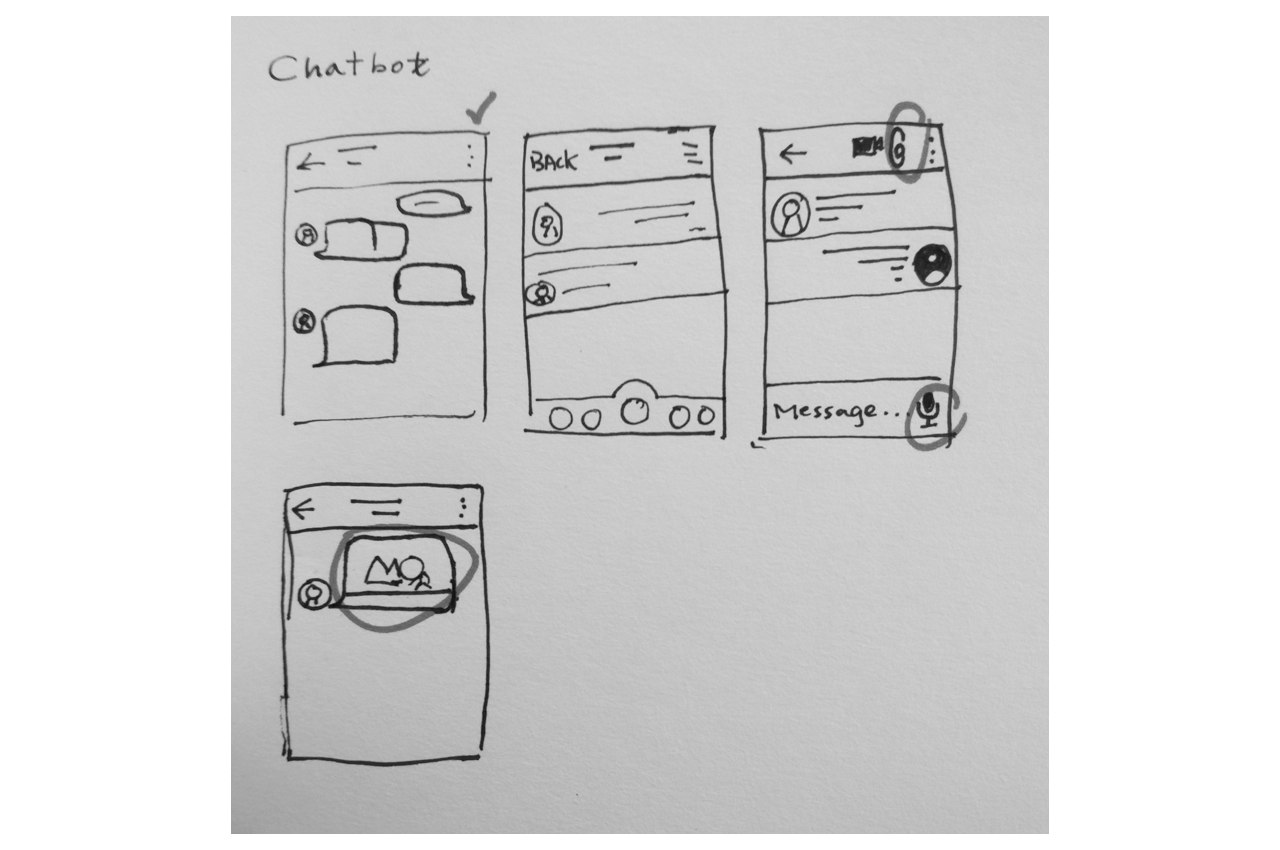 Chatbot
BACK
Message...